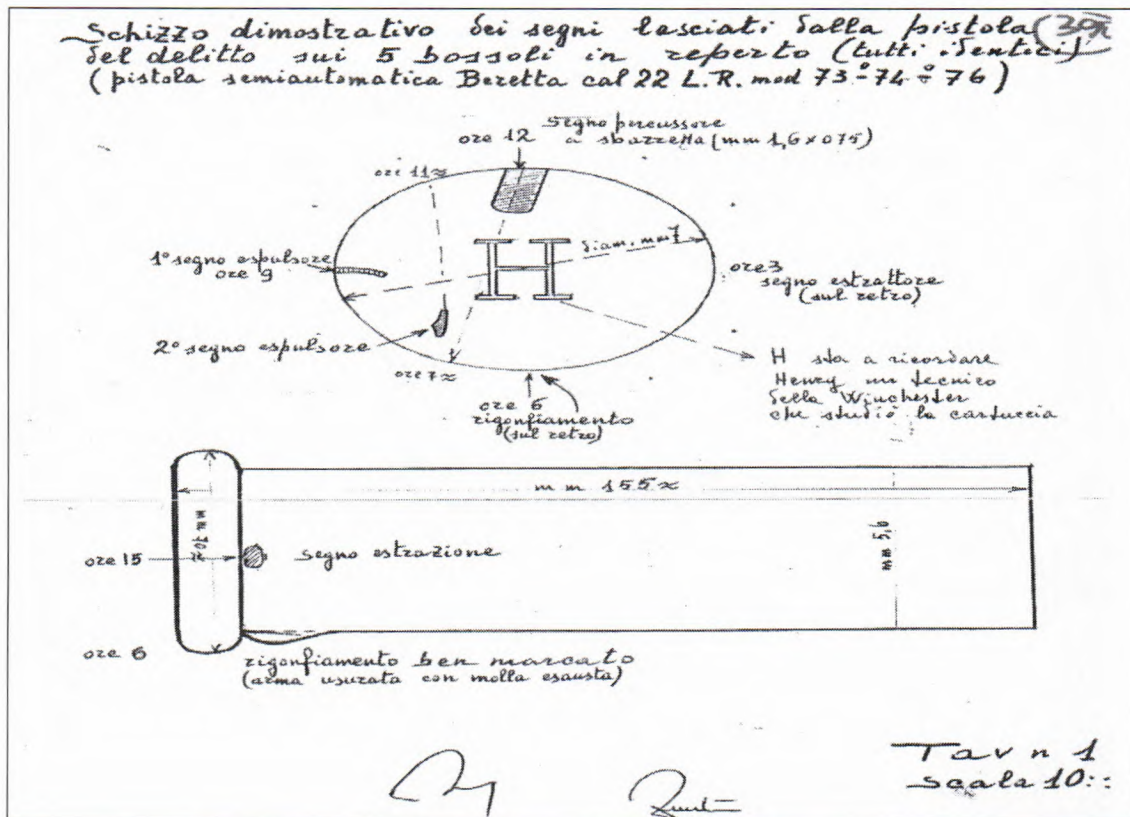 Schizzo dimostrativo dei segni lasciati dalla pistola
del delitto sui 5 bossoli in reperto (tutti identici)
(pistola semiautomatica Beretta cal 22 L.R. mod 73÷74÷76)
Segno percussore
a sbarretta (mm 1,6 x 075)
ore 12
ore 11≈
1° segno espulsore
ore 9
diam. mm 7
H
ore 3
segno estrattore
(sul retro)
2° segno espulsore
ore 7≈
ore 6
rigonfiamento
(sul retro)
H sta a ricordare
Henry un tecnico
della Winchester
che studiò la cartuccia
mm 155≈
mm 70≈
ore 15
segno estrazione
mm 5,6
ore 6
rigonfiamento ben marcato
(arma usurata con molla esausta)
Tav n 1
scala 10::